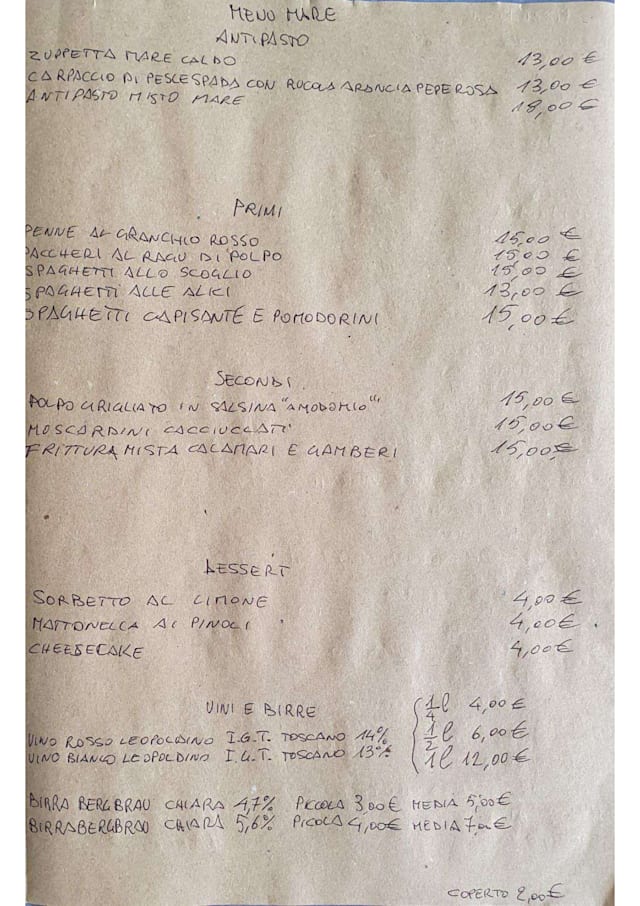 MENU MARE
ANTIPASTO
ZUPPETTA MARE CALDO 13,00 €
CARPACCIO DI PESCESPADA CON RUCOLA ARANCIA PEPE ROSA 13,00 €
ANTIPASTO MISTO MARE 18,00 €
PRIMI
PENNE AL GRANCHIO ROSSO 15,00 €
PACCHERI AL RAGU DI POLPO 15,00 €
SPAGHETTI ALLO SCOGLIO 15,00 €
SPAGHETTI ALLE ALICI 13,00 €
SPAGHETTI CAPISANTE E POMODORINI 15,00 €
SECONDI
POLPO GRIGLIATO IN SALSINA "AMODOMIO" 15,00 €
MOSCARDINI CACCIUCCATI 15,00 €
FRITTURA MISTA CALAMARI E GAMBERI 15,00 €
DESSERT
SORBETTO AL LIMONE 4,00 €
MATTONELLA AI PINOLI 4,00 €
CHEESECAKE 4,00 €
VINI E BIRRE
1/4 l 4,00 €
VINO ROSSO LEOPOLDINO I.G.T. TOSCANO 14% 1/2 l 6,00 €
VINO BIANCO LEOPOLDINO I.G.T. TOSCANO 13% 1 l 12,00 €
BIRRA BERGBRAU CHIARA 4,7% PICCOLA 3,00 € MEDIA 5,00 €
BIRRA BERGBRAU CHIARA 5,6% PICOLA 4,00 € MEDIA 7,00 €
COPERTO 2,00 €